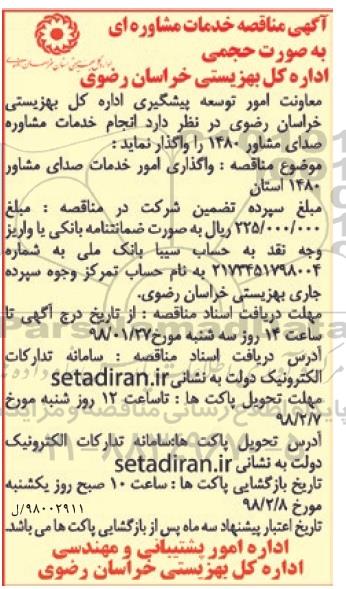 آگهی مناقصه خدمات مشاوره ای
به صورت حجمی
اداره کل بهزیستی خراسان رضوی
معاونت امور توسعه پیشگیری اداره کل بهزیستی
خراسان رضوی در نظر دارد انجام خدمات مشاوره
صدای مشاور ۱۴۸۰ را واگذار نماید :
موضوع مناقصه : واگذاری امور خدمات صدای مشاور
۱۴۸۰ استان
مبلغ سپرده تضمین شرکت در مناقصه : مبلغ
۲۲۵/۰۰۰/۰۰۰ ریال به صورت ضمانتنامه بانکی یا واریز
وجه نقد به حساب سیبا بانک ملی به شماره
۲۱۷۳۴۵۱۷۹۸۰۰۴ به نام حساب تمرکز وجوه سپرده
جاری بهزیستی خراسان رضوی.
مهلت دریافت اسناد مناقصه : از تاریخ درج آگهی تا
ساعت ۱۴ روز سه شنبه مورخ۹۸/۰۱/۲۷
آدرس دریافت اسناد مناقصه : سامانه تدارکات
الکترونیک دولت به نشانی setadiran.ir
مهلت تحویل پاکت ها : تاساعت ۱۲ روز شنبه مورخ
۹۸/۲/۷
آدرس تحویل پاکت ها:سامانه تدارکات الکترونیک
دولت به نشانی setadiran.ir
تاریخ بازگشایی پاکت ها : ساعت ۱۰ صبح روز یکشنبه
مورخ ۹۸/۲/۸
۹۸۰۰۲۹۱۱/ل
تاریخ اعتبار پیشنهاد سه ماه پس از بازگشایی پاکت ها می باشد.
اداره امور پشتیبانی و مهندسی
اداره کل بهزیستی خراسان رضوی